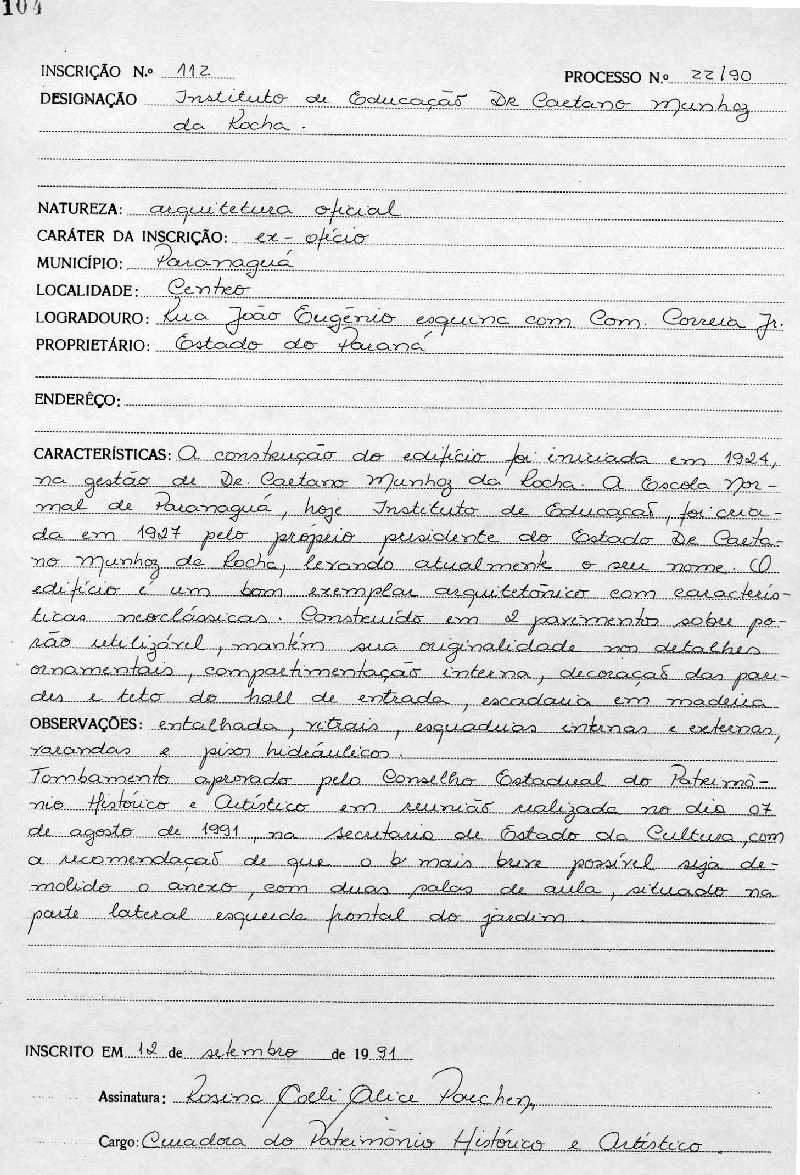 104
INSCRIÇÃO N.º 112 PROCESSO N.º 22/90
DESIGNAÇÃO Instituto de Educação Dr Caetano Munhoz
da Rocha.
NATUREZA: arquitetura oficial
CARÁTER DA INSCRIÇÃO: ex-ofício
MUNICÍPIO: Paranaguá
LOCALIDADE: Centro
LOGRADOURO: Rua João Eugênio esquina com Com. Correia Jr.
PROPRIETÁRIO: Estado do Paraná
ENDERÊÇO:
CARACTERÍSTICAS: A construção do edifício foi iniciada em 1924,
na gestão de Dr Caetano Munhoz da Rocha. A Escola Nor-
mal de Paranaguá, hoje Instituto de Educação, foi cria-
da em 1927 pelo próprio presidente do Estado Dr Caeta-
no Munhoz da Rocha, levando atualmente o seu nome. O
edifício é um bom exemplar arquitetônico com caracterís-
ticas neoclássicas. Construído em 2 pavimentos sobre po-
rão utilizável, mantém sua originalidade nos detalhes
ornamentais, compartimentação interna, decoração das pare-
des e teto do hall de entrada, escadaria em madeira
OBSERVAÇÕES: entalhada, vitrais, esquadrias internas e externas,
varandas e pisos hidráulicos.
Tombamento aprovado pelo Conselho Estadual do Patrimô-
nio Histórico e Artístico em reunião realizada no dia 07
de agosto de 1991, na secretaria de Estado da Cultura, com
a recomendação de que o mais breve possível seja de-
molido o anexo, com duas salas de aula, situado na
parte lateral esquerda frontal do jardim.
INSCRITO EM 12 de setembro de 1991
Assinatura: Rosina Coeli Alice Parchen
Cargo: Curadora do Patrimônio Histórico e Artístico